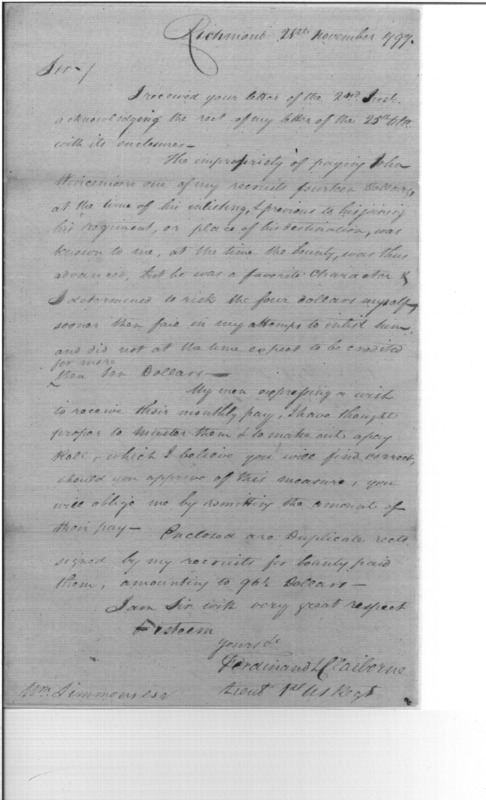 Richmond 28th November 1797.
Sir /
I received your letter of the 24th Inst.
acknowledging the rect of my letter of the 25th Ulto.
with its enclosures—
The impropriety of paying John
one of my recruits fourteen Dollars,
at the time of his inlisting, & previous to his joining
his Regiment, or place of his destination, was
known to me, at the time the bounty, was thus
advanced, but he was a favorite Character &
I determined to risk the four dollars myself,
sooner then fail in my attempts to inlist him,
and did not at the time expect to be credited
for more
then ten Dollars—
My men expressing a wish
to receive their monthly pay, I have thought
proper to muster them & to make out a pay
Role, which I believe you will find correct,
should you approve of this measure, you
will oblige me by remitting the amount of
their pay— Enclosed are Duplicate rects
signed by my recruits for bounty paid
them, amounting to Dollars—
I am Sir with very great respect
& esteem
Yours &c
Ferdinand L Claiborne
Lieut 1st US Regt
Wm Simmons esr